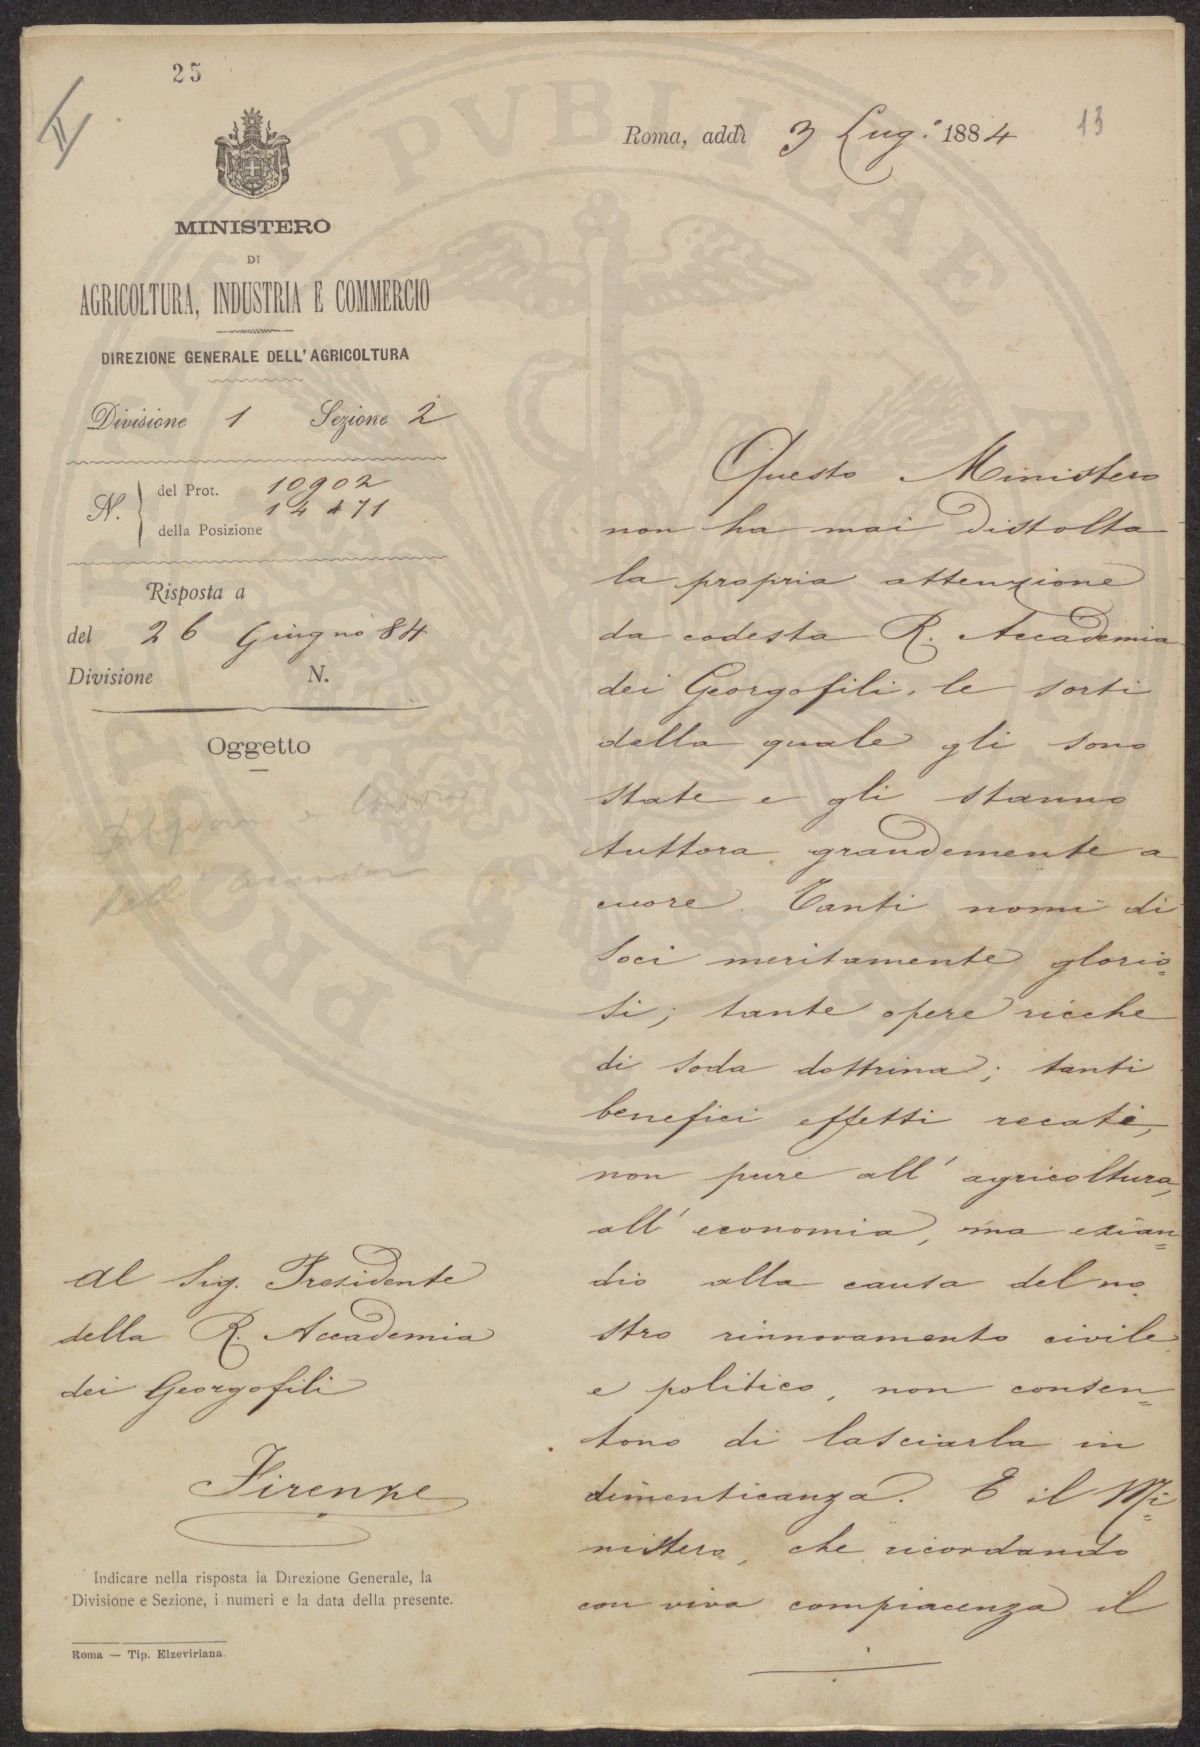 25
Roma, addì 3 Lug.º 1884
13
MINISTERO
DI
AGRICOLTURA, INDUSTRIA E COMMERCIO
DIREZIONE GENERALE DELL'AGRICOLTURA
Divisione 1 Sezione 2
N.
del Prot. 10902
della Posizione
Risposta a
del 26 Giugno 84
Divisione N.
Oggetto
Al Sig. Presidente
della R. Accademia
dei Georgofili
Firenze
Indicare nella risposta la Direzione Generale, la
Divisione e Sezione, i numeri e la data della presente.
Roma — Tip. Elzeviriana
Questo Ministero
non ha mai distolta
la propria attenzione
da codesta R. Accademia
dei Georgofili, le sorti
della quale gli sono
state e gli stanno
tuttora grandemente a
cuore. Tanti nomi di
soci meritamente glorio=
si; tante opere ricche
di soda dottrina; tanti
benefici effetti recati,
non pure all'agricoltura,
all'economia, ma ezian=
dio alla causa del no
stro rinnovamento civile
e politico, non consen=
tono di lasciarla in
dimenticanza. E il Mi=
nistero, che ricordando
con viva compiacenza il